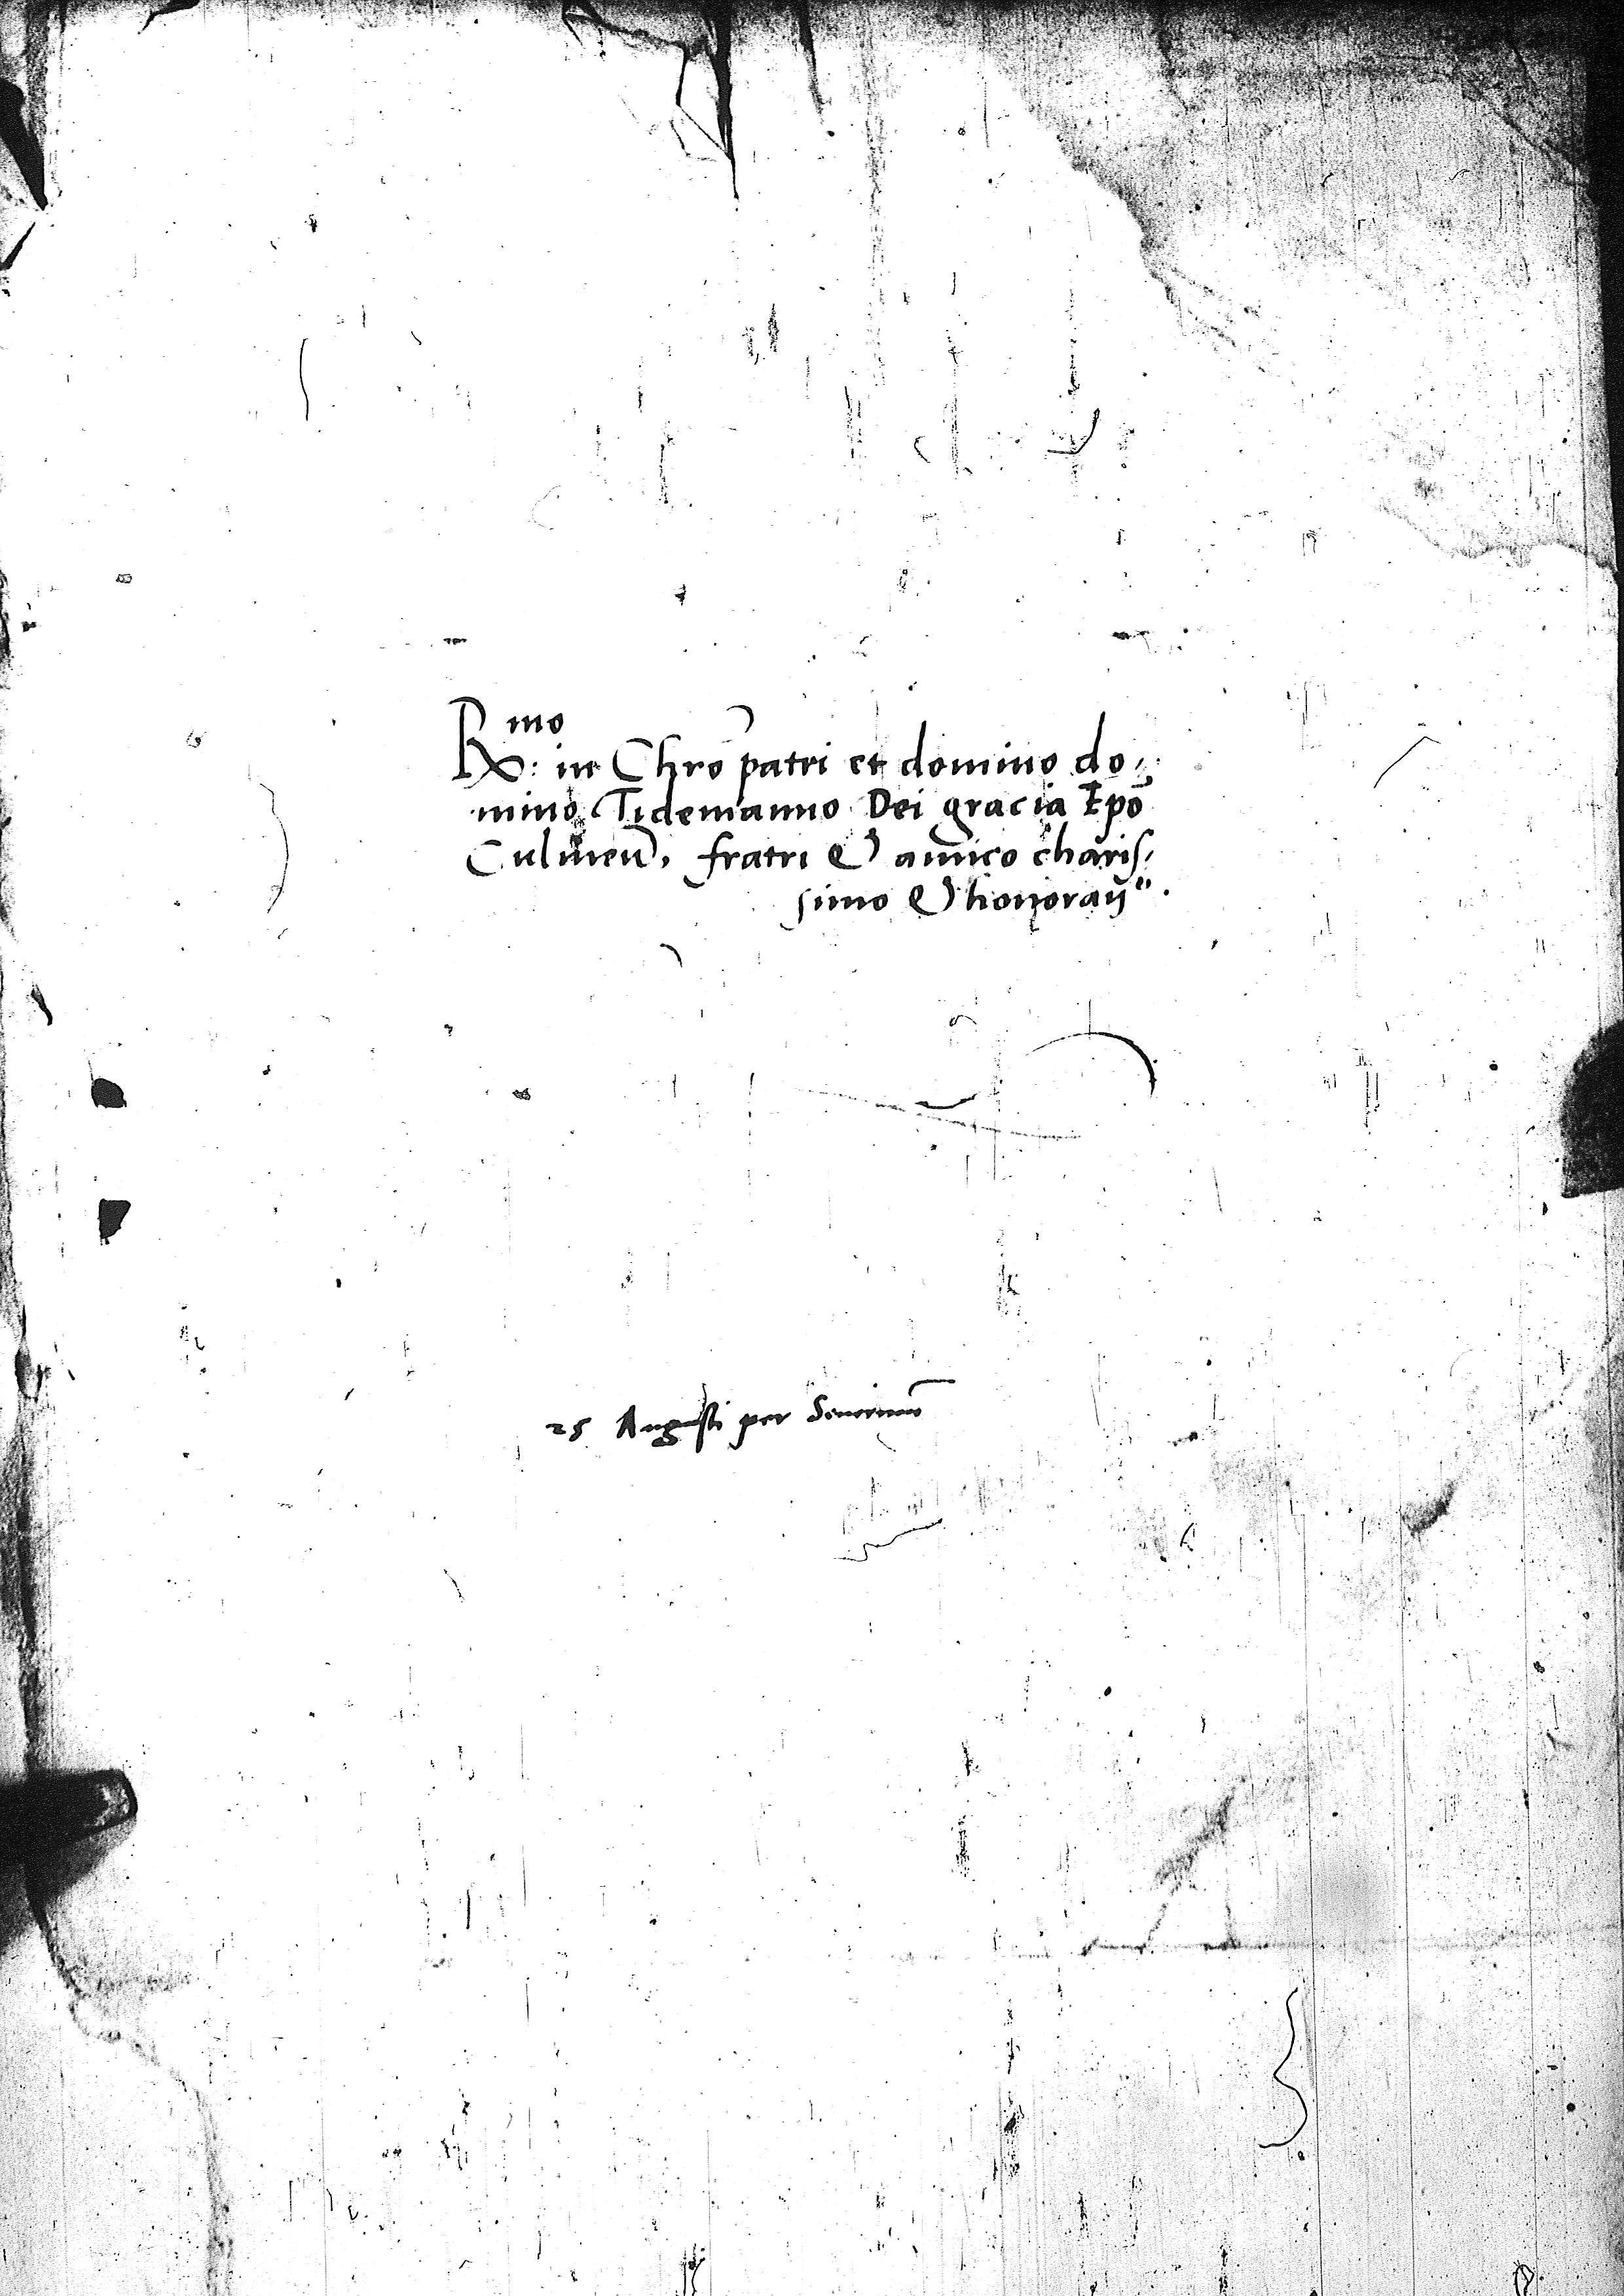 Rmo: in Chro patri et domino do,
mino Tidemanno Dei gracia Epo
Culmen, fratri & amico charis,
simo & honoran.
25 Augusti per Severinum